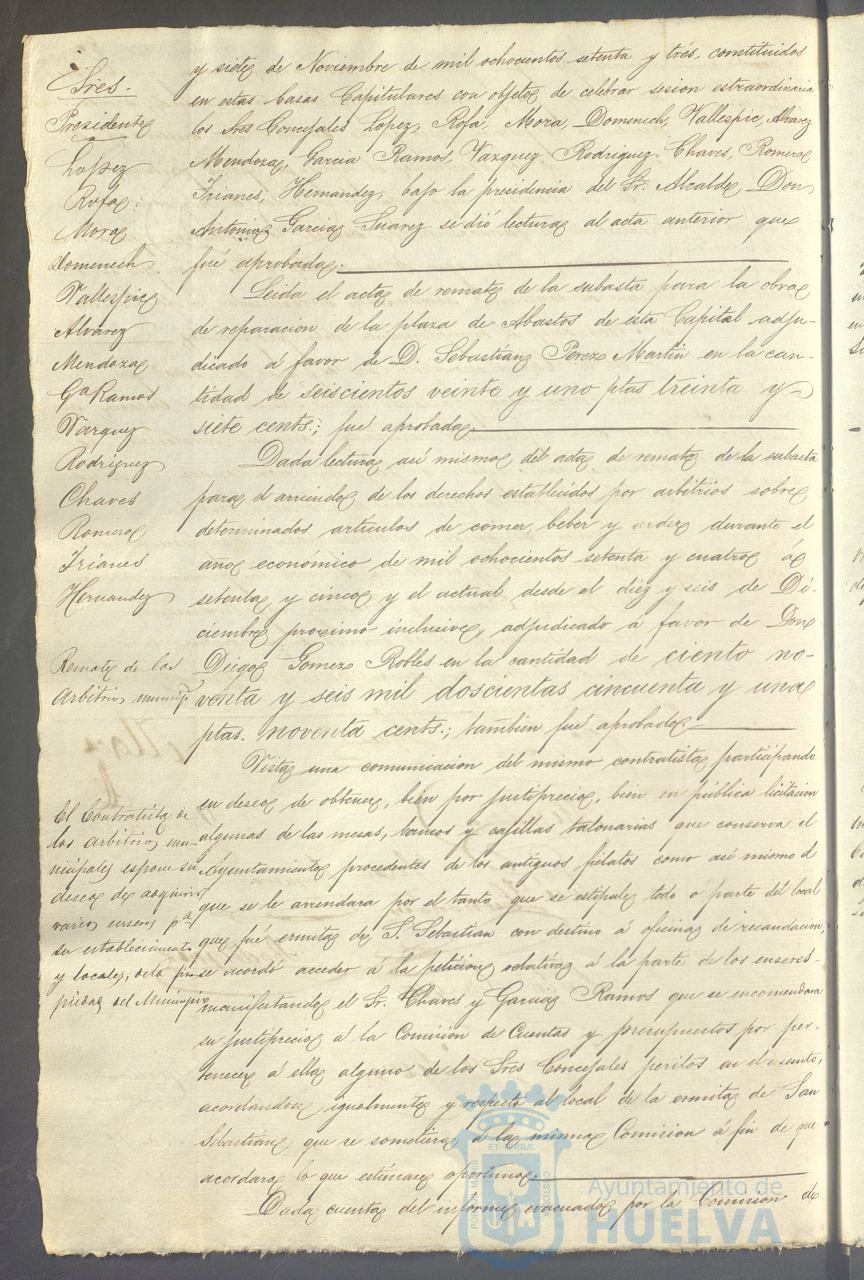 Sres.
Presidente
Lopez
Rofa
Mora
Domenech
Vallespin
Alvarez
Mendoza
Gª Ramos
Vazquez
Rodriguez
Chaves
Romero
Trianes
Hernandez
Remate de los
Arbitrios municip.
El Contratista de
los Arbitrios mu-
nicipales espone su
deseo de adquirir
varios enseres pª
su establecimiento
y locales, de la pro-
piedad del Municipio
y siete de Noviembre de mil ochocientos setenta y tres, constituidos
en estas Casas Capitulares con objeto de celebrar sesion estraordinaria
los Sres Concejales Lopez, Rofa Mora, Domenech, Vallespin, Alvarez
Mendoza, Garcia Ramos, Vazquez, Rodriguez, Chaves, Romero
Trianes, Hernandez, bajo la presidencia del Sr. Alcalde, Don
Antonio Garcia Suarez se dió lectura al acta anterior que
fué aprobada.
Leida el acta de remate de la subasta para la obra
de reparacion de la plaza de Abastos de esta Capital adju-
dicado á favor de D. Sebastian Perez Martin en la can-
tidad de seiscientos veinte y uno ptas treinta y
siete cents.; fué aprobada
Dada lectura asi mismo del acta de remate de la subasta
para el arriendo de los derechos establecidos por arbitrios sobre
determinados artículos de comer, beber y arder durante el
año económico de mil ochocientos setenta y cuatro á
setenta y cinco y el actual desde el diez y seis de Di-
ciembre proximo inclusive, adjudicado á favor de Don
Diego Gomez Robles en la cantidad de ciento no-
venta y seis mil doscientas cincuenta y una
ptas. noventa cents.; tambien fué aprobada
Vista una comunicacion del mismo contratista participando
su deseo de obtener, bien por justiprecio, bien en pública licitacion
algunas de las mesas, bancos y casillas talonarias que conserva el
Ayuntamiento procedentes de los antiguos fielatos como asi mismo el
que se le arrendara por el tanto que se estipule todo o parte del local
que fué ermita de S. Sebastian con destino á oficina de recaudacion,
se acordó acceder á la peticion relativa á la parte de los enseres
manifestando el Sr. Chaves y Garcia Ramos que se encomendara
su justiprecio á la Comision de Cuentas y presupuestos por per-
tenecer á ella alguno de los Sres Concejales peritos en el asunto,
acordandose igualmente y respecto al local de la ermita de San
Sebastian, que se sometiera á la misma Comision á fin de que
acordara lo que estimase oportuno.
Dada cuenta del informe evacuado por la Comision de
Ayuntamiento de
HUELVA